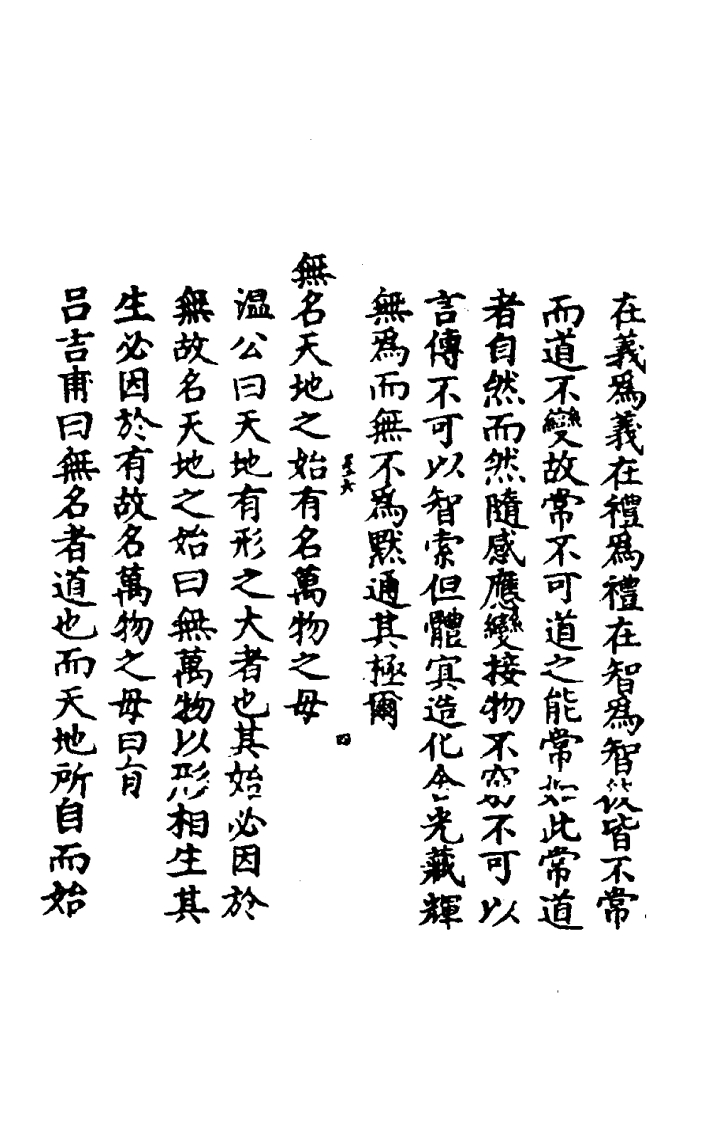 在義為義在禮為禮在智為智彼皆不常
而道不變故常不可道之能常如此常道
者自然而然隨感應變接物不窮不可以
言傳不可以智索但體冥造化含光藏輝
無為而無不為默通其極爾
無名天地之始有名萬物之母
溫公曰天地有形之大者也其始必因於
無故名天地之始曰無萬物以形相生其
生必因於有故名萬物之母曰有
呂吉甫曰無名者道也而天地所自而始